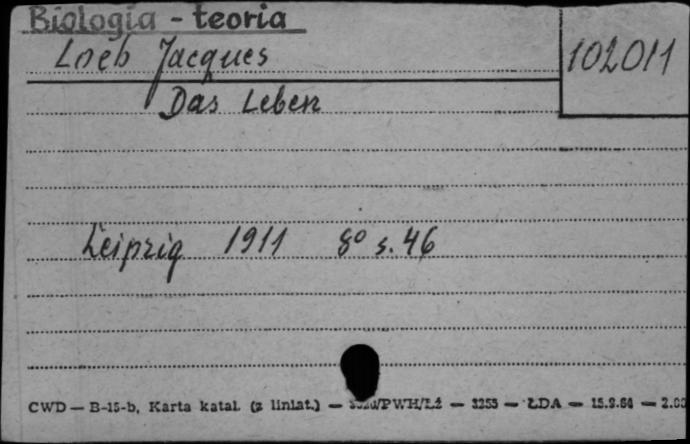 Biologia - teoria
Loeb Jacques
102011
Das Leben
Leipzig 1911 8° s. 46
CWD — B-15-b, Karta katal. (z liniat.) — /PWH/Łż — 3253 — ŁDA —